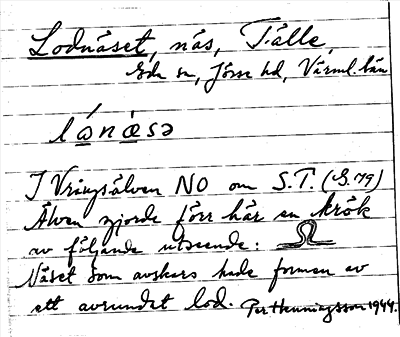 Lodnäset, näs, Tälle,
Eda sn, Jösse hd, Värml. län
lánȧsə
I Vrångsälven NO om S.T. (S.79)
Älven gjorde förr här en krök
av följande utseende:
Näset som avskars hade formen av
ett avrundat lod. Per Henningsson 1944.